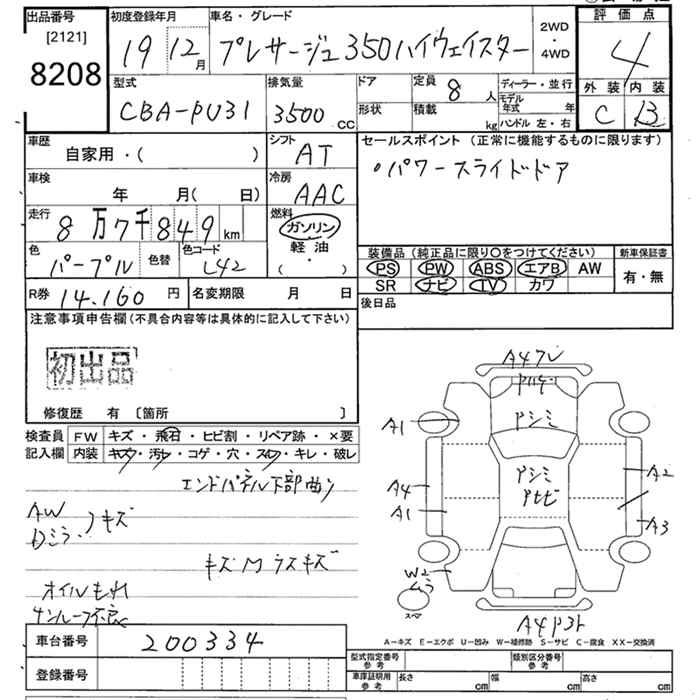 出品番号 初度登録年月 車名・グレード 評価点
[2121] 2WD
8208 19 12月 プレサージュ350ハイウェイスター ・ 4
4WD
型式 排気量 ドア 定員 8人 ディーラー・並行 外装 内装
CBA-PU31 3500cc 形状 積載 kg モデル年式 年 C B
ハンドル 左・右
車歴 シフト セールスポイント (正常に機能するものに限ります)
自家用・( ) AT ・パワースライドドア
車検 冷房
年 月(日) AAC
走行 燃料
8万7千849km ガソリン
軽油
色 色替 色コード ( ・ ) 装備品 (純正品に限り○をつけてください) 新車保証書
パープル L42 PS PW ABS エアB AW 有・無
R券 14,160円 名変期限 月 日 SR ナビ TV カワ
注意事項申告欄(不具合内容等は具体的に記入して下さい) 後日品
初出品
修復歴 有 〔箇所 〕
検査員 FW キズ・飛石・ヒビ割・リペア跡・×要
記入欄 内装 キズ・汚レ・コゲ・穴・スレ・キレ・破レ
エンドパネル下部曲り
AW
Dミラー キズ
キズM ラスキズ
オイルもれ
サンルーフ不良
A4
A1
Pシミ
A4 Pシミ A2
A1 A3
W2
ムラ
スペア
A4P3
A-キズ E-エクボ U-凹み W-補修跡 S-サビ C-腐食 XX-交換済
車台番号 200334 型式指定番号 参考 類別区分番号 参考
登録番号 車庫証明用 参考 長さ cm 幅 cm 高さ cm